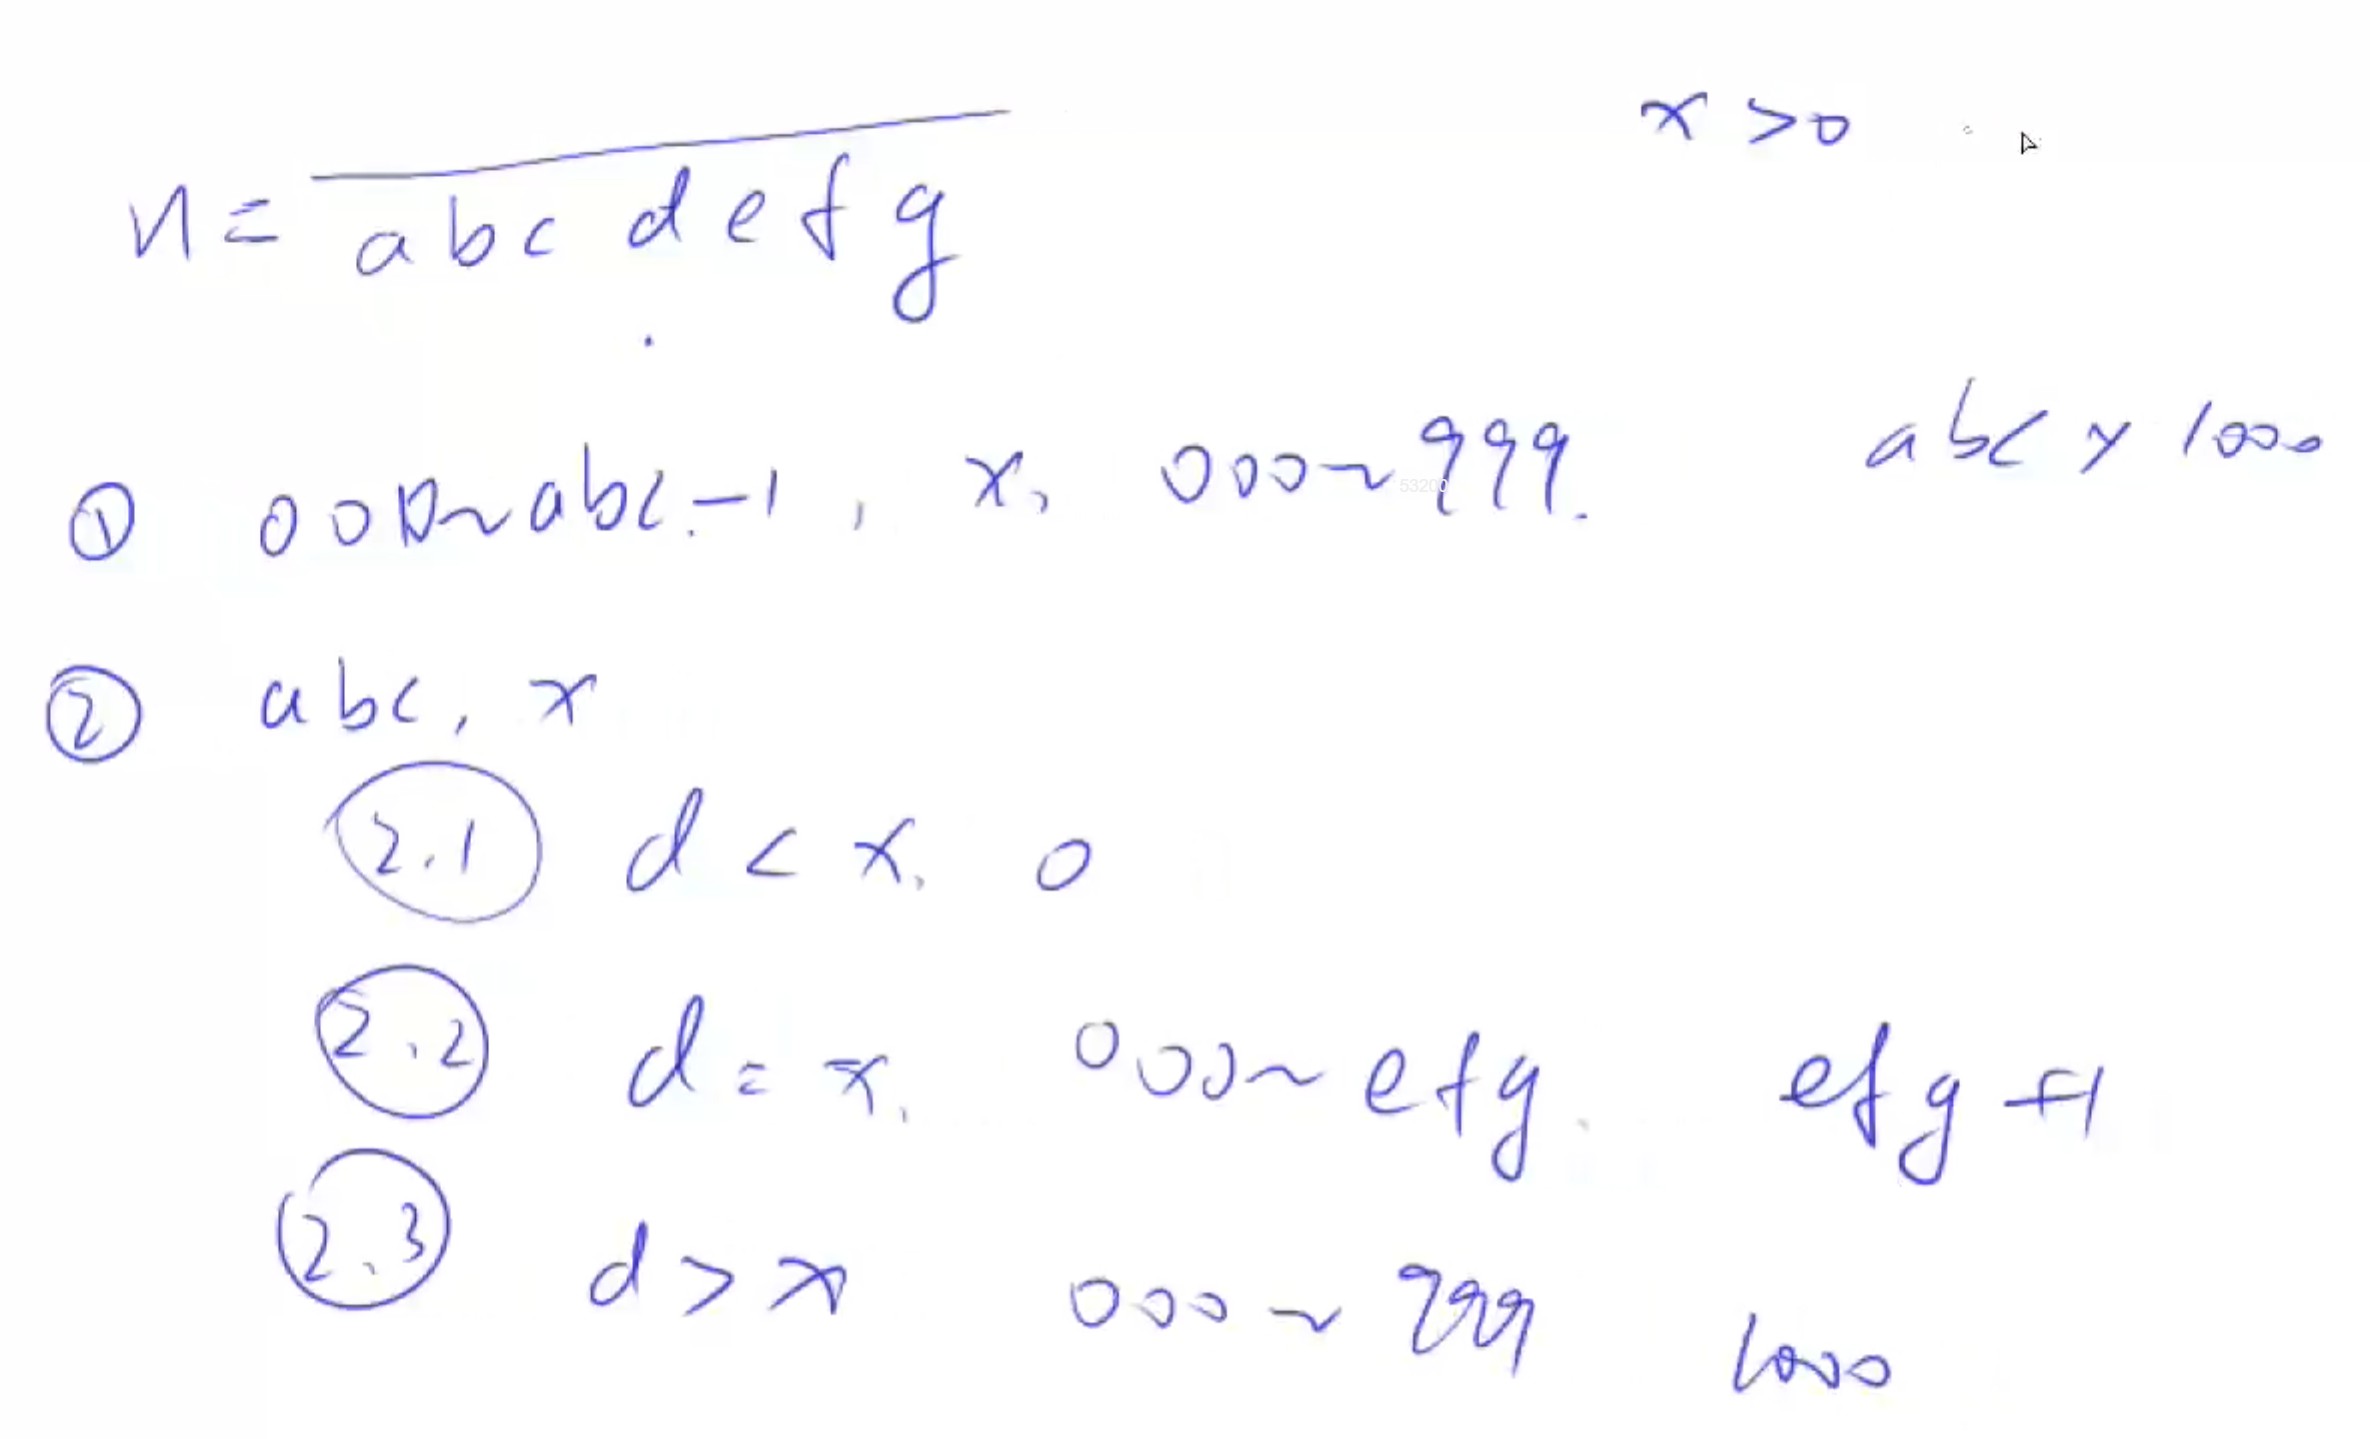 x > 0
n = abcdefg
① 000~abc-1, x, 000~999. abc × 1000
53200
② abc, x
2.1 d < x, 0
2.2 d = x, 000~efg. efg+1
2.3 d > x 000~999 1000